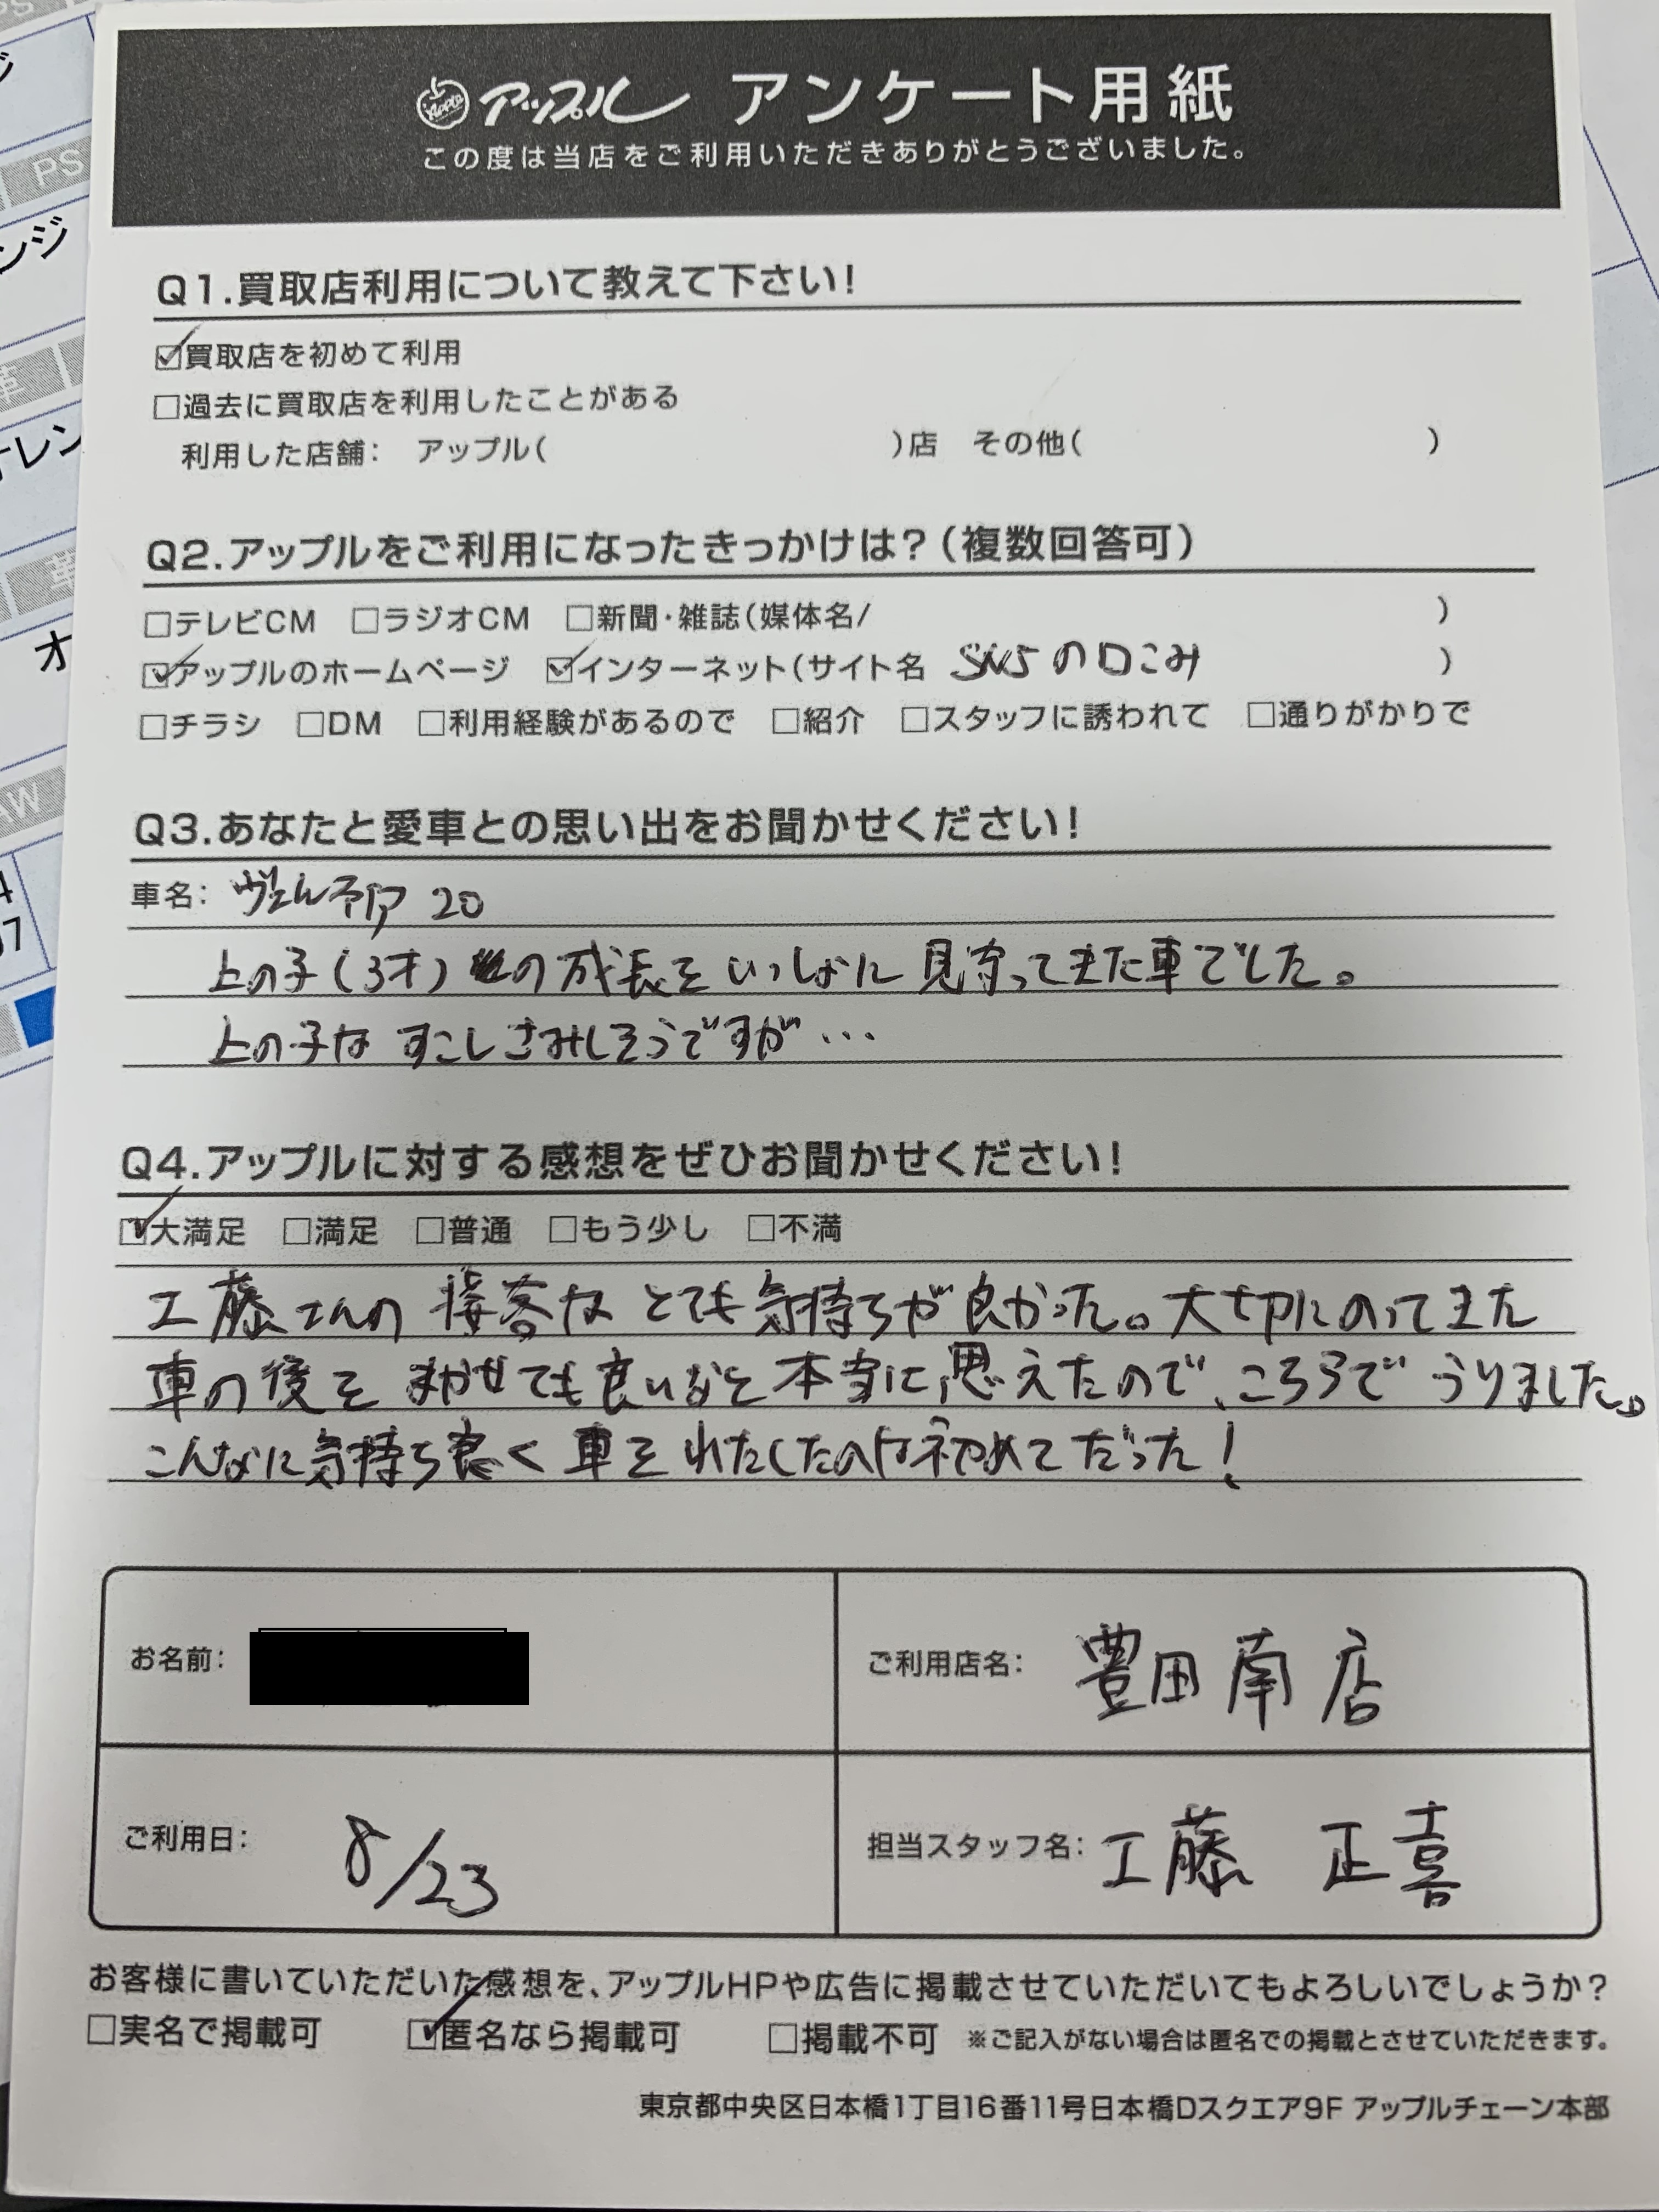 アップル アンケート用紙
この度は当店をご利用いただきありがとうございました。
Q1.買取店利用について教えて下さい!
☑買取店を初めて利用
□過去に買取店を利用したことがある
利用した店舗: アップル( )店 その他( )
Q2.アップルをご利用になったきっかけは?(複数回答可)
□テレビCM □ラジオCM □新聞・雑誌(媒体名/ )
☑アップルのホームページ ☑インターネット(サイト名 SNSの口こみ )
□チラシ □DM □利用経験があるので □紹介 □スタッフに誘われて □通りがかりで
Q3.あなたと愛車との思い出をお聞かせください!
車名: ヴェルファイア 20
上の子(3才)の成長をいっしょに見守ってきた車でした。
上の子は すこしさみしそうですが…
Q4.アップルに対する感想をぜひお聞かせください!
☑大満足 □満足 □普通 □もう少し □不満
工藤さんの 接客は とても気持ちが良かった。大切にのってきた
車の後を まかせても良いなと本当に思えたので、こちらで うりました。
こんなに気持ち良く 車をわたしたのは初めてだった!
お名前:
ご利用店名: 豊田南店
ご利用日: 8/23
担当スタッフ名: 工藤 正喜
お客様に書いていただいた感想を、アップルHPや広告に掲載させていただいてもよろしいでしょうか?
□実名で掲載可 ☑匿名なら掲載可 □掲載不可 ※ご記入がない場合は匿名での掲載とさせていただきます。
東京都中央区日本橋1丁目16番11号日本橋Dスクエア9F アップルチェーン本部